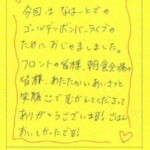 今回は なぁーとでの
ゴールデンボンバーライブの
ためにおじゃましました。
フロントの皆様、朝食会場の
皆様、あたたかいあいさつと
笑顔で むかえてくださって
ありがとうございます! ごはん
おいしかったです!